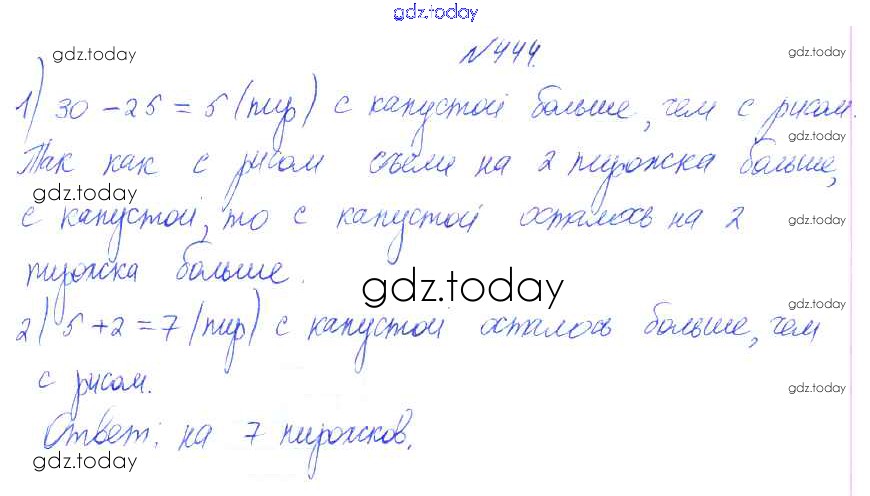 gdz.today
№444.
gdz.today
gdz.today
1) 30 - 25 = 5 (пир) с капустой больше, чем с рисом.
gdz.today
Так как с рисом съели на 2 пирожка больше,
gdz.today
с капустой, то с капустой осталось на 2
gdz.today
пирожка больше.
gdz.today
gdz.today
2) 5 + 2 = 7 (пир) с капустой осталось больше, чем
с рисом.
gdz.today
Ответ: на 7 пирожков.
gdz.today
gdz.today